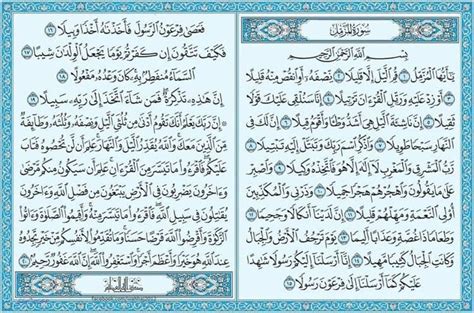 سُورَةُ المُزَّمِّلِ
بِسْمِ اللَّهِ الرَّحْمَٰنِ الرَّحِيمِ
يَٰٓأَيُّهَا ٱلْمُزَّمِّلُ ١ قُمِ ٱلَّيْلَ إِلَّا قَلِيلًا ٢ نِّصْفَهُۥٓ أَوِ ٱنقُصْ مِنْهُ قَلِيلًا
٣ أَوْ زِدْ عَلَيْهِ وَرَتِّلِ ٱلْقُرْءَانَ تَرْتِيلًا ٤ إِنَّا سَنُلْقِى عَلَيْكَ قَوْلًا
ثَقِيلًا ٥ إِنَّ نَاشِئَةَ ٱلَّيْلِ هِىَ أَشَدُّ وَطْـًٔا وَأَقْوَمُ قِيلًا ٦ إِنَّ لَكَ فِى
ٱلنَّهَارِ سَبْحًا طَوِيلًا ٧ وَٱذْكُرِ ٱسْمَ رَبِّكَ وَتَبَتَّلْ إِلَيْهِ تَبْتِيلًا ٨
رَّبُّ ٱلْمَشْرِقِ وَٱلْمَغْرِبِ لَآ إِلَٰهَ إِلَّا هُوَ فَٱتَّخِذْهُ وَكِيلًا ٩ وَٱصْبِرْ
عَلَىٰ مَا يَقُولُونَ وَٱهْجُرْهُمْ هَجْرًا جَمِيلًا ١٠ وَذَرْنِى وَٱلْمُكَذِّبِينَ
أُو۟لِى ٱلنَّعْمَةِ وَمَهِّلْهُمْ قَلِيلًا ١١ إِنَّ لَدَيْنَآ أَنكَالًا وَجَحِيمًا ١٢
وَطَعَامًا ذَا غُصَّةٍ وَعَذَابًا أَلِيمًا ١٣ يَوْمَ تَرْجُفُ ٱلْأَرْضُ وَٱلْجِبَالُ
وَكَانَتِ ٱلْجِبَالُ كَثِيبًا مَّهِيلًا ١٤ إِنَّآ أَرْسَلْنَآ إِلَيْكُمْ رَسُولًا شَٰهِدًا
عَلَيْكُمْ كَمَآ أَرْسَلْنَآ إِلَىٰ فِرْعَوْنَ رَسُولًا ١٥
فَعَصَىٰ فِرْعَوْنُ ٱلرَّسُولَ فَأَخَذْنَٰهُ أَخْذًا وَبِيلًا ١٦
فَكَيْفَ تَتَّقُونَ إِن كَفَرْتُمْ يَوْمًا يَجْعَلُ ٱلْوِلْدَٰنَ شِيبًا ١٧
ٱلسَّمَآءُ مُنفَطِرٌۢ بِهِۦ كَانَ وَعْدُهُۥ مَفْعُولًا ١٨
إِنَّ هَٰذِهِۦ تَذْكِرَةٌ فَمَن شَآءَ ٱتَّخَذَ إِلَىٰ رَبِّهِۦ سَبِيلًا ١٩
إِنَّ رَبَّكَ يَعْلَمُ أَنَّكَ تَقُومُ أَدْنَىٰ مِن ثُلُثَىِ ٱلَّيْلِ وَنِصْفَهُۥ وَثُلُثَهُۥ وَطَآئِفَةٌ
مِّنَ ٱلَّذِينَ مَعَكَ وَٱللَّهُ يُقَدِّرُ ٱلَّيْلَ وَٱلنَّهَارَ عَلِمَ أَن لَّن تُحْصُوهُ فَتَابَ
عَلَيْكُمْ فَٱقْرَءُوا۟ مَا تَيَسَّرَ مِنَ ٱلْقُرْءَانِ عَلِمَ أَن سَيَكُونُ مِنكُم مَّرْضَىٰ
وَءَاخَرُونَ يَضْرِبُونَ فِى ٱلْأَرْضِ يَبْتَغُونَ مِن فَضْلِ ٱللَّهِ وَءَاخَرُونَ
يُقَٰتِلُونَ فِى سَبِيلِ ٱللَّهِ فَٱقْرَءُوا۟ مَا تَيَسَّرَ مِنْهُ وَأَقِيمُوا۟ ٱلصَّلَوٰةَ وَءَاتُوا۟
ٱلزَّكَوٰةَ وَأَقْرِضُوا۟ ٱللَّهَ قَرْضًا حَسَنًا وَمَا تُقَدِّمُوا۟ لِأَنفُسِكُم مِّنْ خَيْرٍ تَجِدُوهُ
عِندَ ٱللَّهِ هُوَ خَيْرًا وَأَعْظَمَ أَجْرًا وَٱسْتَغْفِرُوا۟ ٱللَّهَ إِنَّ ٱللَّهَ غَفُورٌ رَّحِيمٌۢ ٢٠